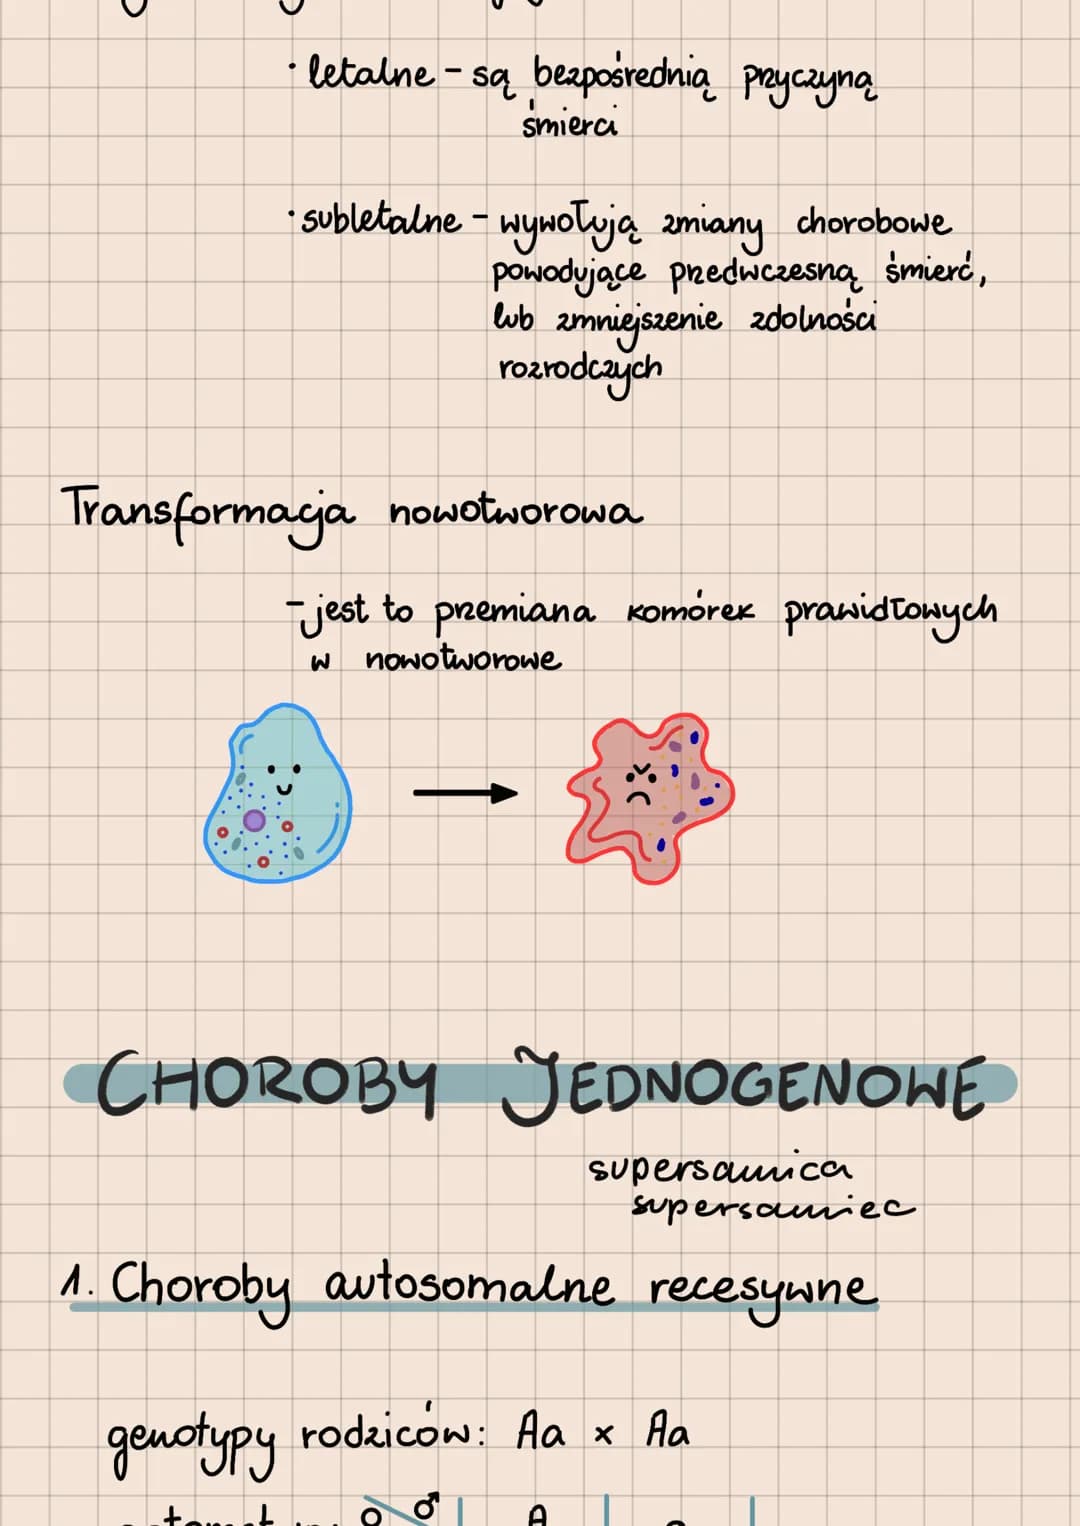 · letalne - są bezpośrednią przyczyną
śmierci
· subletalne - wywołują zmiany chorobowe
powodujące przedwczesną śmierć,
lub zmniejszenie zdolności
rozrodczych
Transformacja nowotworowa
- jest to przemiana komórek prawidłowych
w nowotworowe
CHOROBY JEDNOGENOWE
supersamica
supersamiec
1. Choroby autosomalne recesywne
genotypy rodziców: Aa x Aa
♀ ♂ A